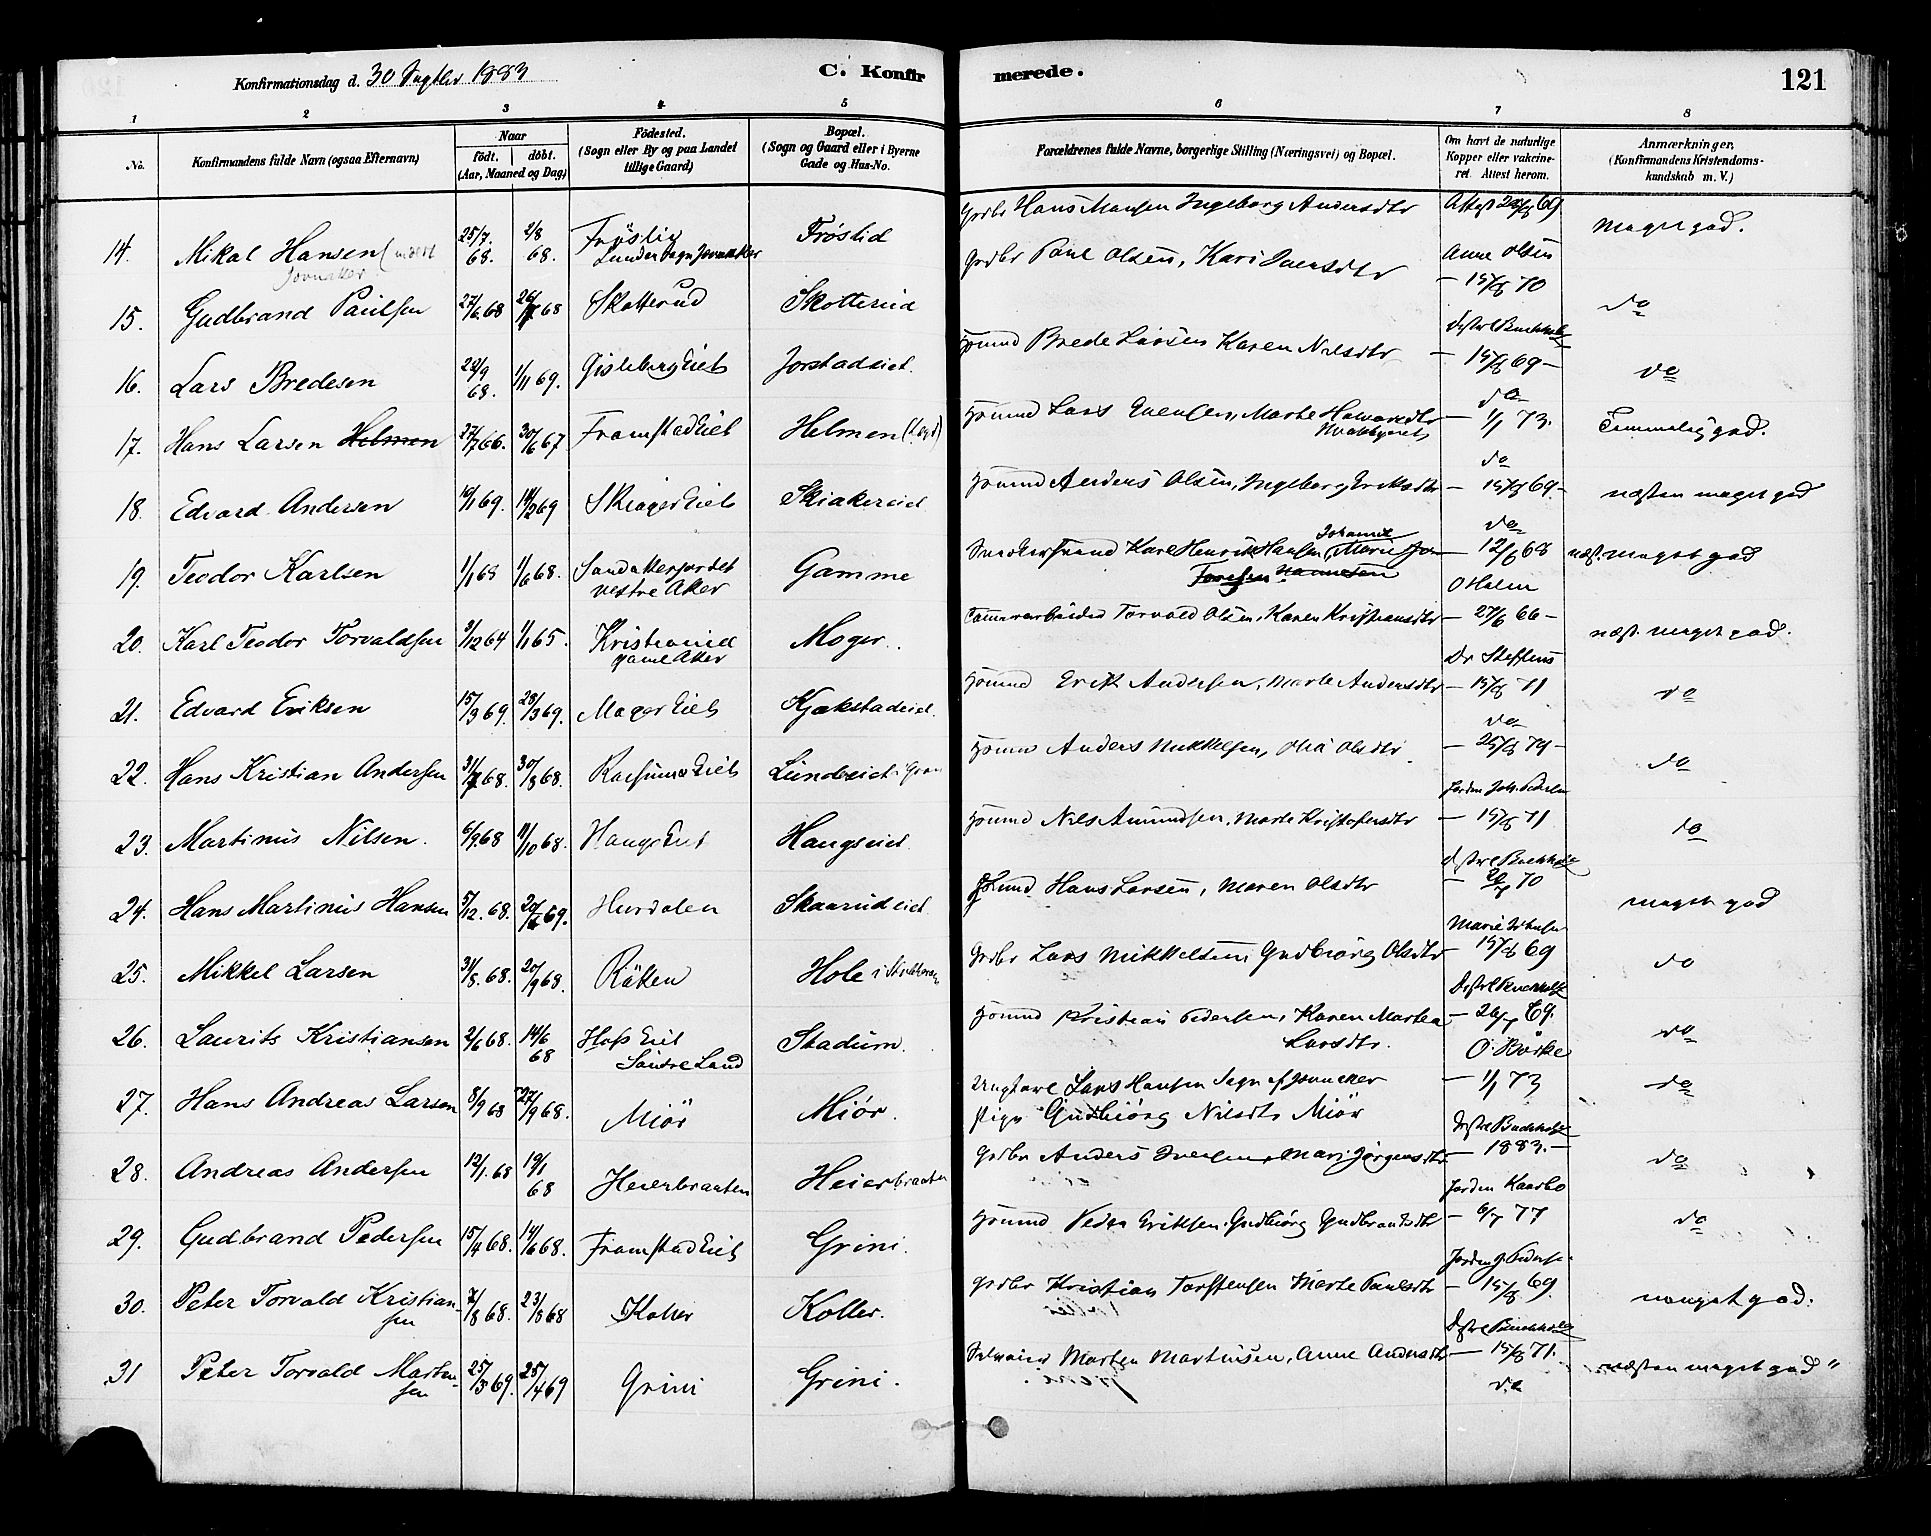 Konfirmationsdag d. 30 Septbr 1883
C. Konfir merede.
121
1 2 3 4 5 6 7 8
No.
Konfirmandens fulde Navn (ogsaa Efternavn)
Naar
födt. döbt.
(Aar, Maaned og Dag)
Födested.
(Sogn eller By og paa Landet
tillige Gaard)
Bopæl.
(Sogn og Gaard eller i Byerne
Gade og Hus-No.
Forældrenes fulde Navne, borgerlige Stilling (Næringsvei) og Bopæl.
Om havt de naturlige
Kopper eller vakcine-
ret. Attest herom.
Anmærkninger,
(Konfirmandens Kristendoms-
kundskab m. V.)
14. Mikal Hansen 25/7 68. 2/8 68. Fröslie Lunder Sogn Jevnaker Fröslid Gbr Hans Hansen Ingeborg Andersdtr Attest 69 Meget god.
Jevnaker
15. Gudbrand Paulsen 27/6 68 68 Skotterud Skotterud Gbr Paul Olsen, Kari Iversdtr Anne Olsen 15/8 70 do
16. Lars Bredesen 22/9 68. 1/11 69. Gisleberg Eiet Jorstadeiet. Husmd Brede Larsen Karen Nilsdtr Distrl Buchholz 15/8 69 do
17. Hans Larsen Helmen 27/7 66. 30/6 67 Framstad Eiet Helmen Husmd Lars Evensen, Marte Halvorsdtr do 1/1 73. Temmelig god.
18. Edvard Andersen 10/1 69. 14/2 69 Skiager Eiet Skiakereiet Husmd Anders Olsen, Ingeborg Eriksdtr do 15/8 69 næsten meget god
19. Teodor Karlsen 1/1 68 1/6 68. Sandakerjordet vestre Aker Gamme Karl Henrik Hansen, Johanne Marie do 12/6 68 næst. meget god
20. Karl Teodor Torvaldsen 9/12 64 1/1 65. Kristiania gamle Aker Moger. Torvald Olsen, Karen Kristiansdtr O Holm 27/6 66 næst. meget god.
21. Edvard Eriksen 15/3 69. 28/3 69. Moger Eiet Kjækstadeiet. Husmd Erik Andersen, Marte Andersdtr Dr Steffens 15/8 71 do
22. Hans Kristian Andersen 31/7 68. 30/8 68. Rossum Eiet Lundeeiet i Gran Husmd Anders Mikkelsen, Olia Olsdtr. do 25/8 79 do
23. Martinus Nilsen. 6/9 68 11/10 68. Haugs Eiet Haugseiet Husmd Nils Amundsen, Marte Kristofersdtr 15/8 71 do
24. Hans Martinus Hansen 5/12. 68. 69. Hurdalen Skaarudeiet Husmd Hans Larsen, Maren Olsdtr Distrl Buchholz 70 meget god
25. Mikkel Larsen 31/8. 68. 20/9 68. Räken Hole Gbr Lars Mikkelsen Gudbjörg Olsdtr 15/8 69 do
26. Laurits Kristiansen 2/6 68. 14/6 68 Hofs Eiet Söndre Land Stadum. Husmd Kristian Pedersen, Karen Martea Larsdtr. Distrl Buchholz 69. do
27. Hans Andreas Larsen 8/9 68 27/9 68. Miör Miör. Ungkarl Lars Hansen Sogn af Jevnaker O. Borke 1/1 73 do
Pige Gudbiörg Nilsdtr Miör
28. Andreas Andersen 12/1. 68 19/1 68 Heierbraaten Heierbraaten Gbr Anders Iversen, Mari Jörgensdtr Distrl Buchholz 1883. do
29. Gudbrand Pedersen 15/4 68. 14/6 68. Framstad Eiet Grini. Husmd Peder Eriksen. Gudbiörg Gudbrandsdtr Jordm Kaarbo 6/7 77 do
30. Peter Torvald Kristian- 68. 23/8 68 Koller Koller. Gbr Kristian Torstensen Marte Paulsdtr 15/8 69. meget god.
sen
31 Peter Torvald Marten- 25/3 69. 25/4 69 Grini Grini. Selveier Morten Martinsen, Anne Andersdtr Distrl Buchholz 15/8 71. næsten meget god
sen do